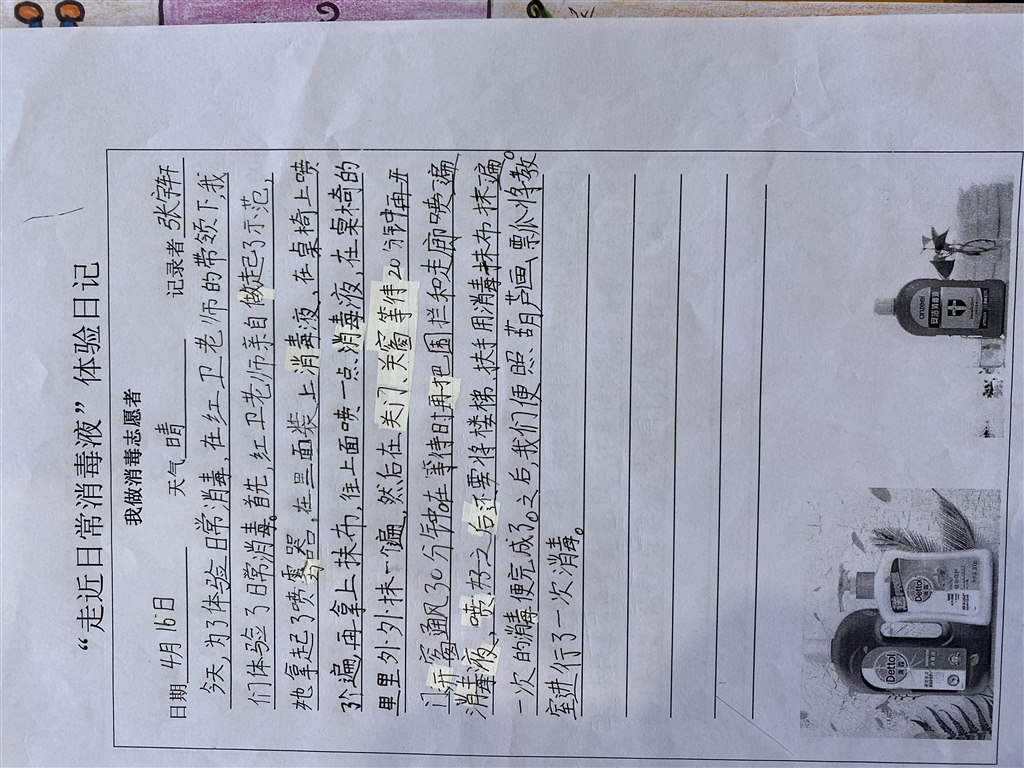 “走近日常消毒液”体验日记
我做消毒志愿者
日期 4月16日 天气 晴 记录者 张宇轩
今天,为了体验日常消毒,在红卫老师的带领下,我
们体验了日常消毒。首先,红卫老师亲自做起了示范,
她拿起了喷雾器,在里面装上消毒液、在桌椅上喷
了个遍,再拿上抹布,往上面喷一点消毒液,在桌椅的
里里外外抹一个遍,然后在关门、关窗等待20分钟再开
门开窗通风30分钟。在等待时再把围栏和走廊喷一遍
消毒液、喷好之后还要将楼梯、扶手用消毒抹布抹一遍。
一次的消毒便完成了。之后,我们便照葫芦画瓢将教
室进行了一次消毒。
Dettol
滴露
Dettol